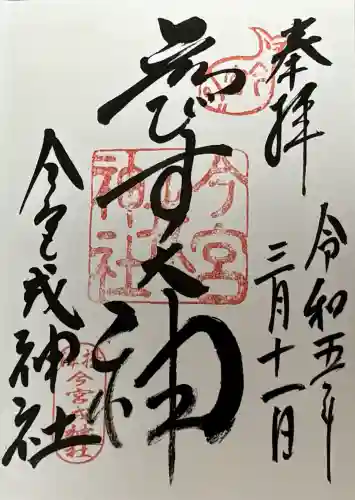 奉拝
令和五年
三月十一日
ゑびす大神
今宮戎神社
今宮
神社
今宮戎神社